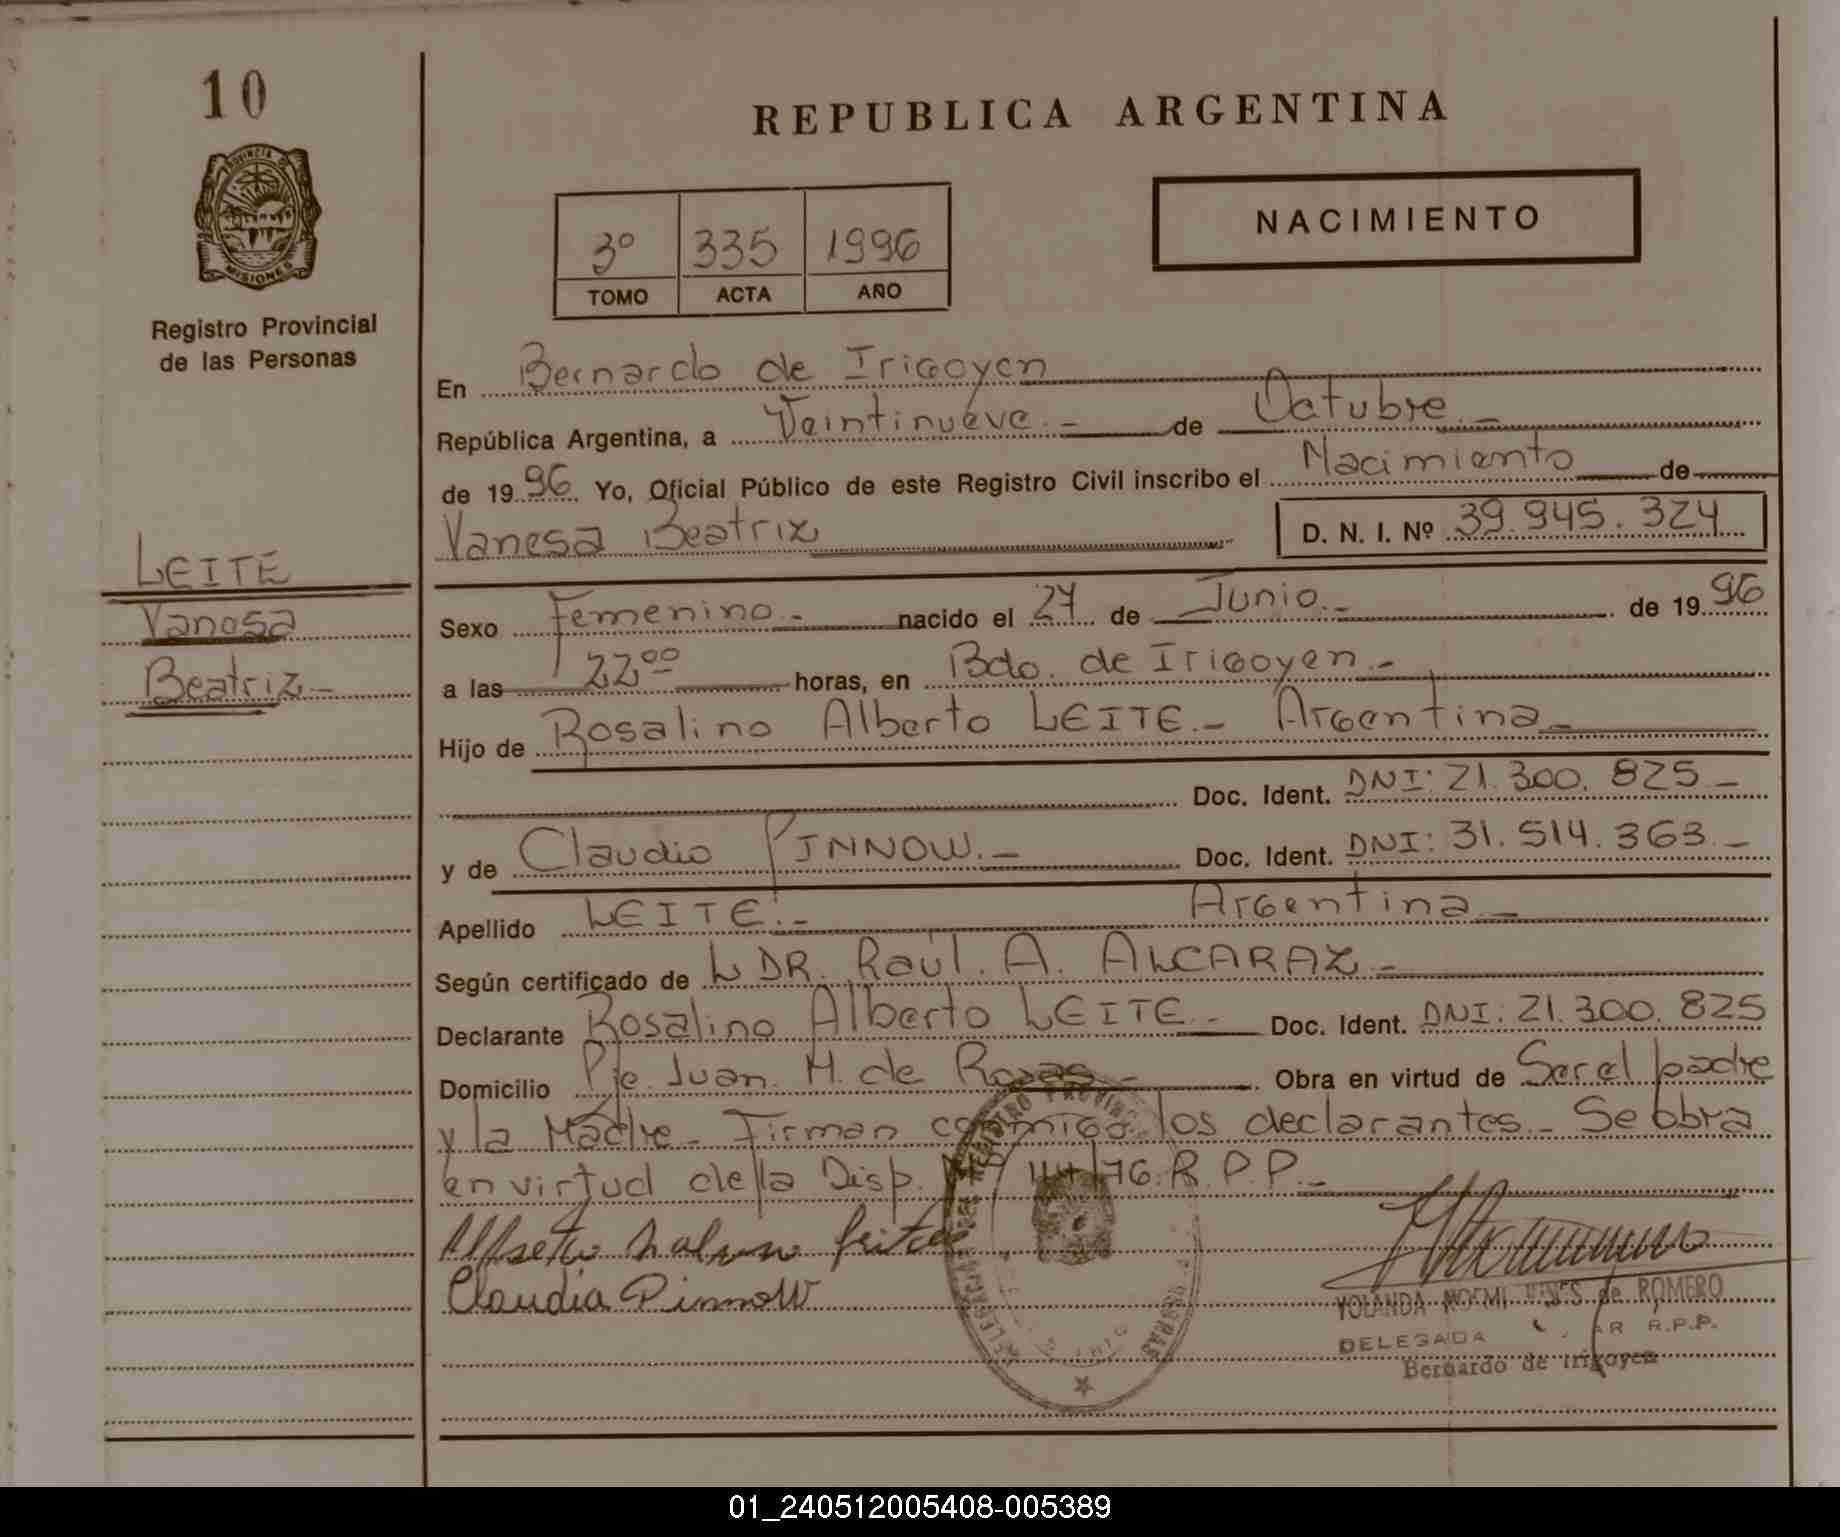 10
PROVINCIA DE
MISIONES
Registro Provincial
de las Personas
REPUBLICA ARGENTINA
3º 335 1996
TOMO ACTA AÑO
NACIMIENTO
En Bernardo de Irigoyen
República Argentina, a Veintinueve.- de Octubre.-
de 1996 Yo, Oficial Público de este Registro Civil inscribo el Nacimiento de
Vanesa Beatriz D. N. I. Nº 39.945.324
LEITE
Vanesa
Beatriz-
Sexo Femenino.- nacido el 27 de Junio.- de 1996
a las 22⁰⁰ horas, en Bdo. de Irigoyen.-
Hijo de Rosalino Alberto LEITE.- Argentina-
Doc. Ident. DNI: 21.300.825-
y de Claudio PINNOW.- Doc. Ident. DNI: 31.514.363.-
Apellido LEITE.- Argentina-
Según certificado de L DR. Raúl. A. ALCARAZ-
Declarante Rosalino Alberto LEITE- Doc. Ident. DNI: 21.300.825
Domicilio Pje. Juan. M. de Rosas- Obra en virtud de Ser el padre
y la Madre- Firman conmigo los declarantes- Se obra
en virtud de la Disp. Nº /76.R.P.P.-
Claudia Pinnow
YOLANDA NOEMI de ROMERO
DELEGADA R.P.P.
Bernardo de Irigoyen
01_240512005408-005389